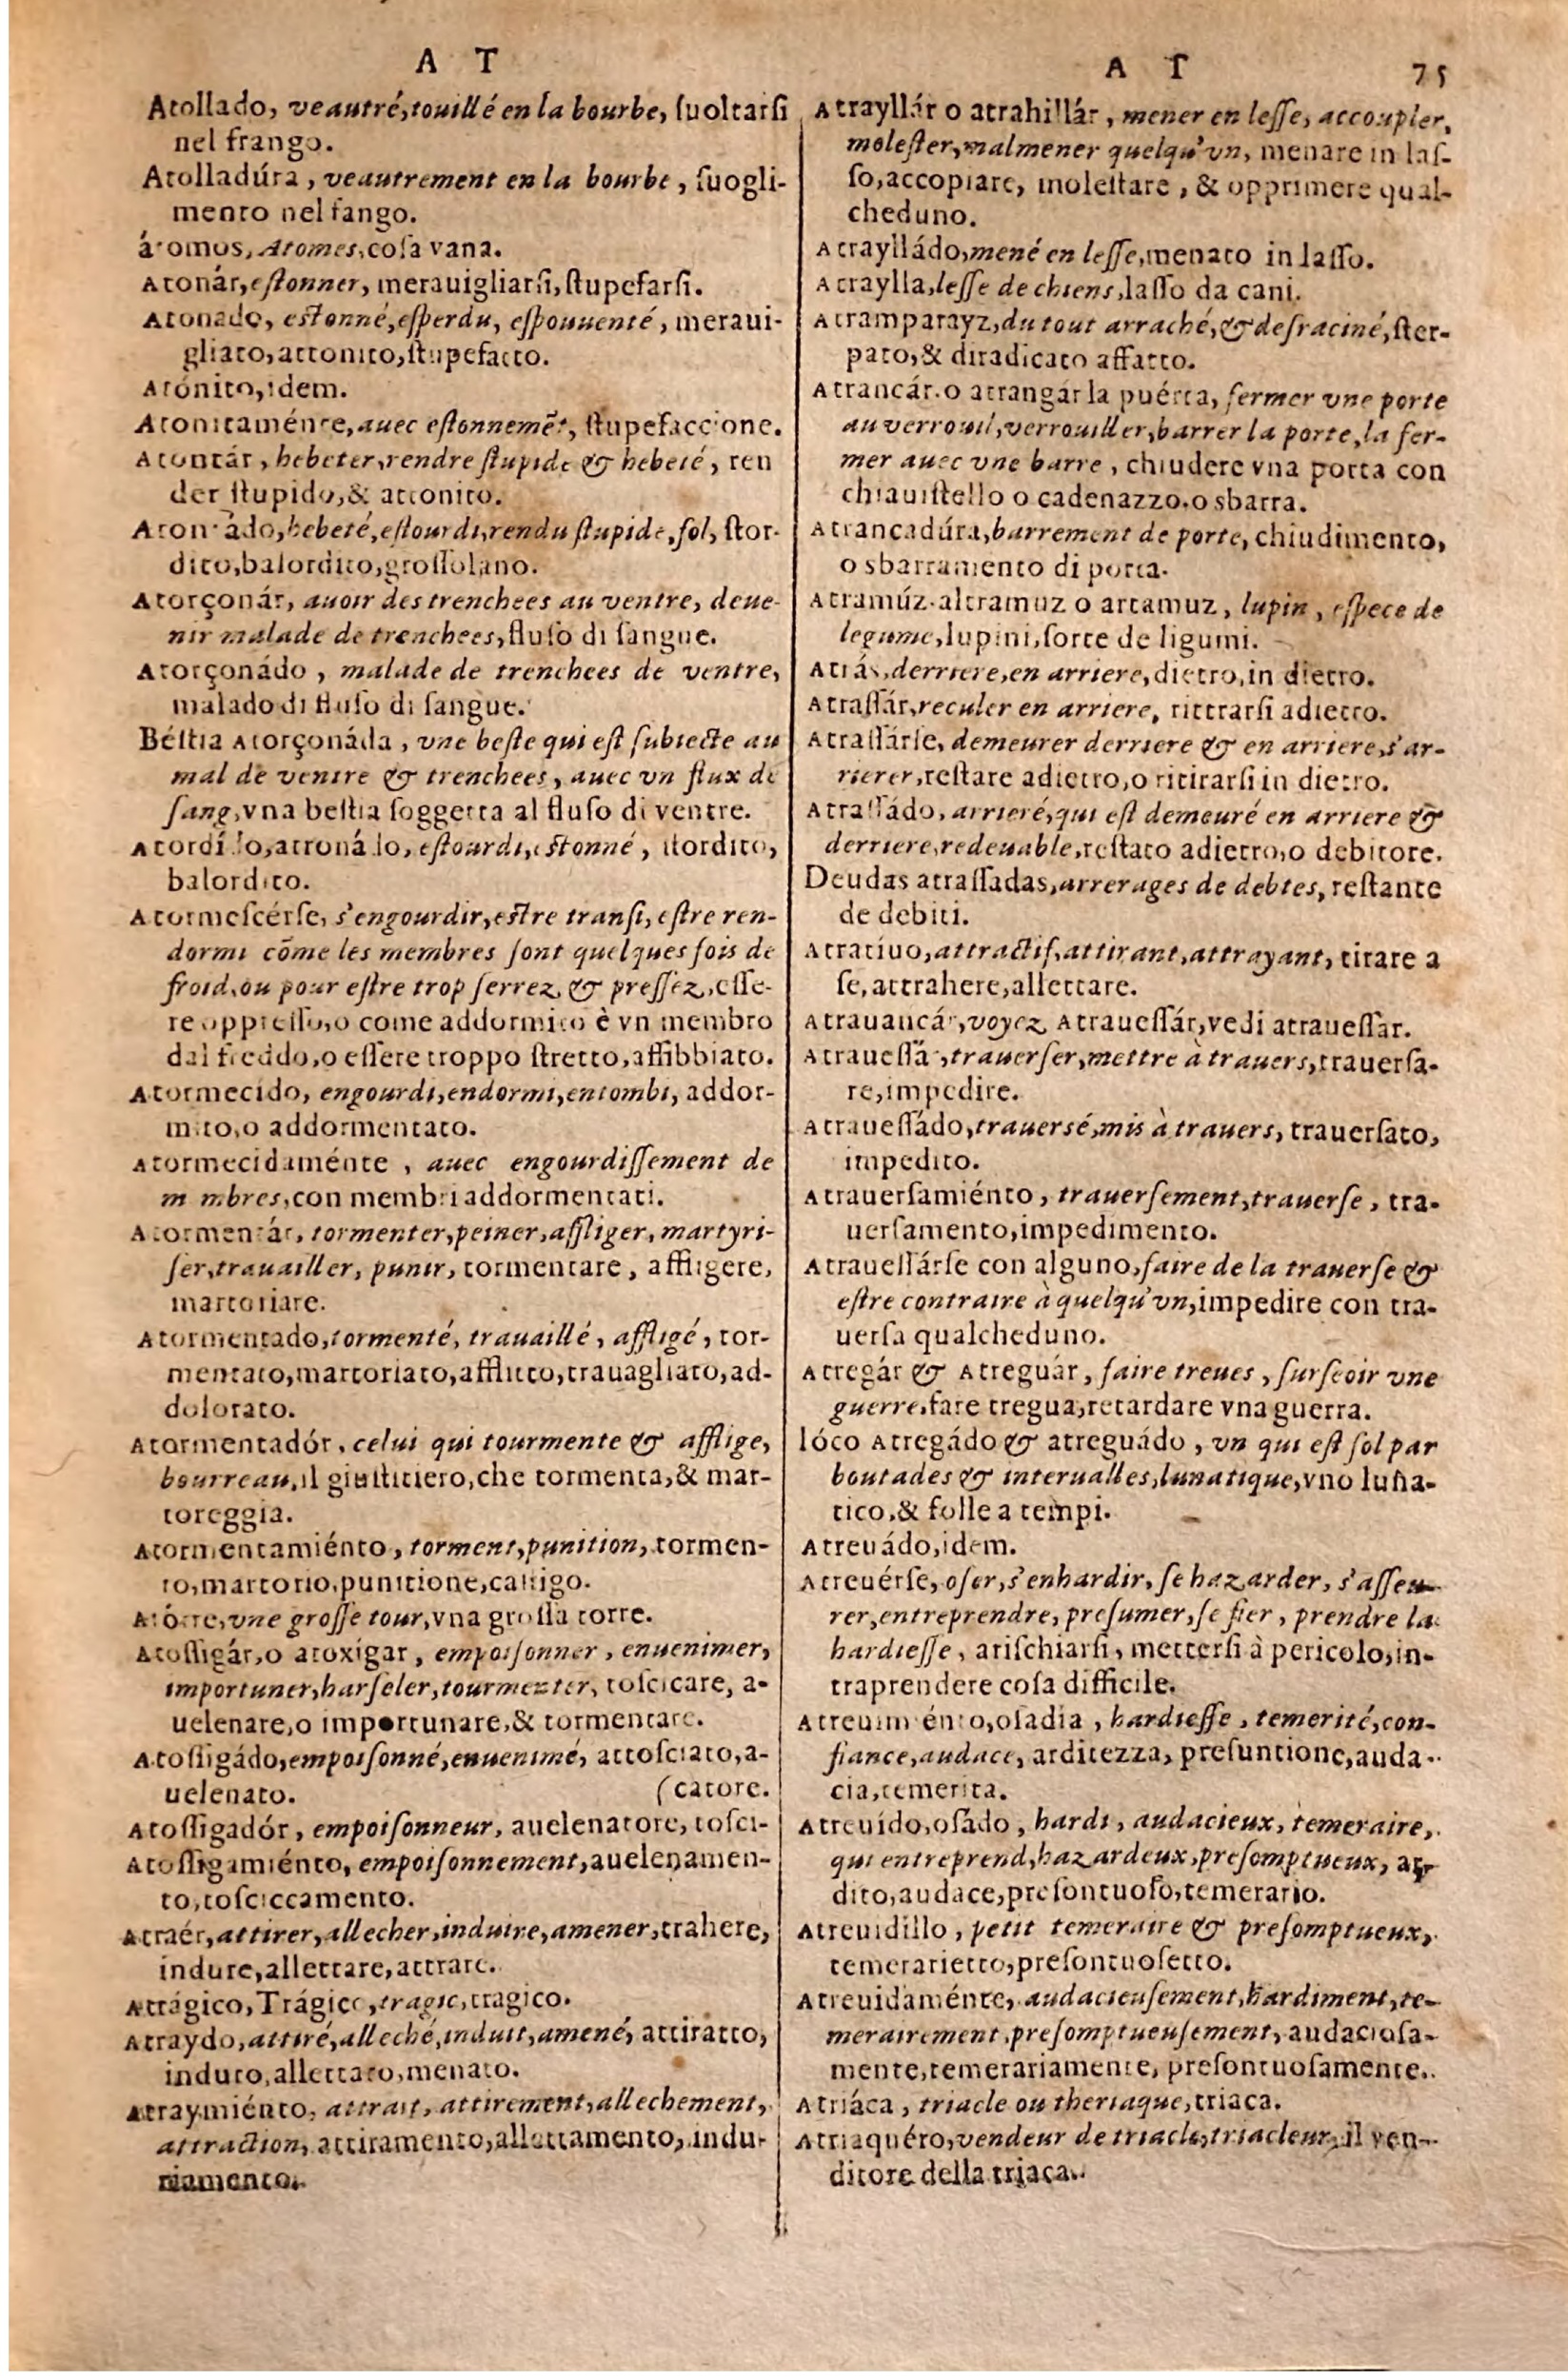 A T
Atollado, veautré,touillé en la bourbe, ſuoltarſi
nel frango.
Atolladúra, veautrement en la bourbe, ſuogli-
mento nel fango.
átomos, Atomes,coſa vana.
Atonár,eſtonner, merauigliarſi,ſtupefarſi.
Atonado, eſtonné,eſperdu, eſpouuenté, meraui-
gliato,attonito,ſtupefatto.
Atónito,idem.
Atonitaménte,auec eſtonnemẽt, ſtupefaccione.
Atontár, hebeter,rendre ſtupide & hebeté, ren
der ſtupido,& attonito.
Atontádo,hebeté,eſtourdi,rendu ſtupide,fol, ſtor-
dito,balordito,groſſolano.
Atorçonár, auoir des trenchees au ventre, deue-
nir malade de trenchees,fluſo di ſangue.
Atorçonádo, malade de trenchees de ventre,
malado di fluſo di ſangue.
Béſtia Atorçonáda, vne beſte qui eſt ſubiecte au
mal de ventre & trenchees, auec vn flux de
ſang,vna beſtia ſoggetta al fluſo di ventre.
Atordído,atronádo, eſtourdi,eſtonné, ſtordito,
balordito.
Atormeſcérſe, s'engourdir,eſtre tranſi, eſtre ren-
dormi cõme les membres ſont quelques fois de
froid,ou pour eſtre trop ſerrez & preſſez,eſſe-
re oppreſſo,o come addormito è vn membro
dal freddo,o eſſere troppo ſtretto,affibbiato.
Atormecido, engourdi,endormi,entombi, addor-
mito,o addormentato.
Atormecidaménte, auec engourdiſſement de
m mbres,con membri addormentati.
Atormentár, tormenter,peiner,affliger, martyri-
ſer,trauailler, punir, tormentare, affligere,
martoriare.
Atormentado,tormenté, trauaillé, affligé, tor-
mentato,martoriato,afflitto,trauagliato,ad-
dolorato.
Atormentadór, celui qui tourmente & afflige,
bourreau,il giuſtitiero,che tormenta,& mar-
toreggia.
Atormentamiénto, torment,punition, tormen-
to,martorio,punitione,caſtigo.
Atórre,vne groſſe tour,vna groſſa torre.
Atoſſigár,o atoxigar, empoiſonner, enuenimer,
importuner,harſeler,tourmenter, toſcicare, a-
uelenare,o importunare,& tormentare.
Atoſſigádo,empoiſonné,enuenimé, attoſciato,a-
uelenato. (catore.
Atoſſigadór, empoiſonneur, auelenatore, toſci-
Atoſſigamiénto, empoiſonnement,auelenamen-
to,toſciccamento.
Atraér,attirer,allecher,induire,amener,trahere,
indure,allettare,attrare.
Atrágico,Trágico,tragic,tragico.
Atraydo,attiré,alleché,induit,amené, attiratto,
induto,allettato,menato.
Atraymiénto, attrait, attirement,allechement,
attraction, attiramento,allettamento, indu-
niamento.
A T 75
Atrayllár o atrahillár, mener en leſſe, accoupler,
moleſter,malmener quelqu'vn, menare in laſ-
ſo,accopiare, moleſtare, & opprimere qual-
cheduno.
Atraylládo,mené en leſſe,menato in laſſo.
Atraylla,leſſe de chiens,laſſo da cani.
Atramparayz,du tout arraché,& deſraciné,ſter-
pato,& diradicato affatto.
Atrancár.o atrangár la puérta, fermer vne porte
au verrouil,verrouiller,barrer la porte,la fer-
mer auec vne barre, chiudere vna porta con
chiauiſtello o cadenazzo,o sbarra.
Atrancadúra,barrement de porte, chiudimento,
o sbarramento di porta.
Atramúz.altramuz o artamuz, lupin, eſpece de
legume,lupini,ſorte de ligumi.
Atrás,derriere,en arriere,dietro,in dietro.
Atraſſár,reculer en arriere, ritrarſi adietro.
Atraſſárſe, demeurer derriere & en arriere,s'ar-
rierer,reſtare adietro,o ritirarſi in dietro.
Atraſſádo, arrieré,qui eſt demeuré en arriere &
derriere,redeuable,reſtato adietro,o debitore.
Deudas atraſſadas,arrerages de debtes, reſtante
de debiti.
Atratiuo,attractif,attirant,attrayant, tirare a
ſe,attrahere,allettare.
Atrauancár,voyez Atraueſſár,vedi atraueſſar.
Atraueſſár,trauerſer,mettre à trauers,trauerſa-
re,impedire.
Atraueſſádo,trauersé,mis à trauers, trauerſato,
impedito.
Atrauerſamiénto, trauerſement,trauerſe, tra-
uerſamento,impedimento.
Atraueſſárſe con alguno,faire de la trauerſe &
eſtre contraire à quelqu'vn,impedire con tra-
uerſa qualcheduno.
Atregár & Atreguár, faire treues, ſurſeoir vne
guerre,fare tregua,retardare vna guerra.
lóco Atregádo & atreguádo, vn qui eſt fol par
boutades & interualles,lunatique,vno luna-
tico,& folle a tempi.
Atreuádo,idem.
Atreuérſe, oſer,s'enhardir, ſe hazarder, s'aſſeu-
rer,entreprendre, preſumer,ſe fier, prendre la
hardieſſe, ariſchiarſi, metterſi à pericolo,in-
traprendere coſa difficile.
Atreuimiénto,oſadia, hardieſſe, temerité,con-
fiance,audace, arditezza, preſuntione,auda-
cia,temerita.
Atreuído,oſádo, hardi, audacieux, temeraire,
qui entreprend,hazardeux,preſomptueux, ar-
dito,audace,preſontuoſo,temerario.
Atreuidillo, petit temeraire & preſomptueux,
temerarietto,preſontuoſetto.
Atreuidaménte, audacieuſement,hardiment,te-
merairement,preſomptueuſement, audacioſa-
mente,temerariamente, preſontuoſamente.
Atriáca, triacle ou theriaque,triaca.
Atriaquéro,vendeur de triacle,triacleur, il ven-
ditore della triaca.